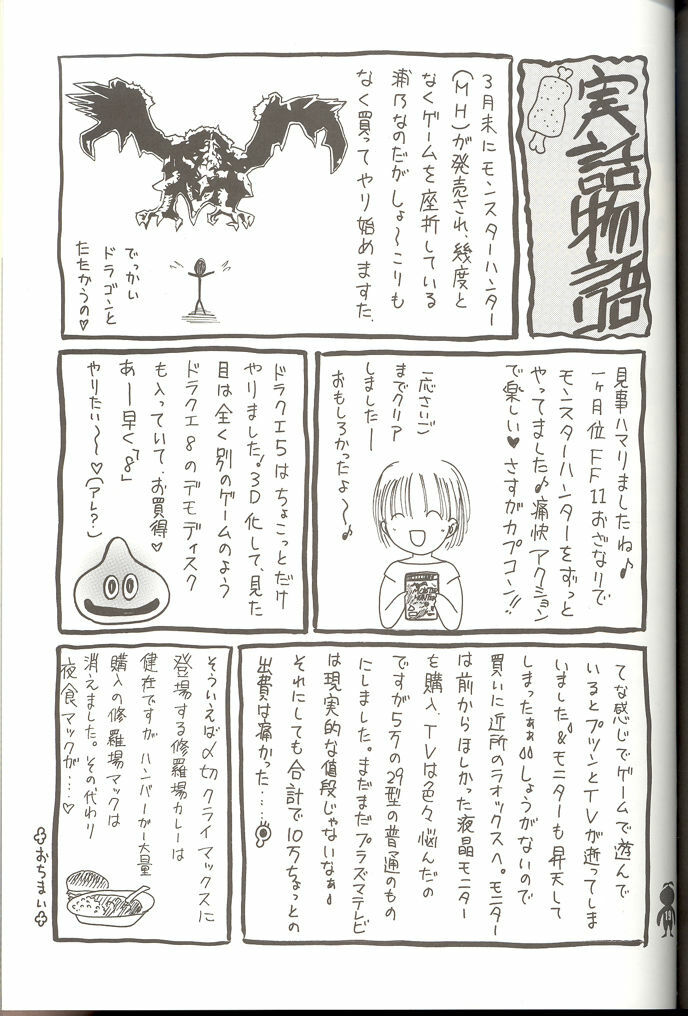 実話物語
3月末にモンスターハンター
(MH)が発売され、幾度と
なくゲームを座折している
浦乃なのだが しょ〜こりも
なく買ってやり始めますた.
でっかい
ドラゴンと
たたかうの♡
見事ハマりましたね♪
一ヶ月位FF11おざなりで
モンスターハンターをずっと
やってました♪痛快アクション
で楽しい♥ さすがカプコン!!
一応さいご
までクリア
しましたー
おもしろかったよ〜♪
ドラクエ5はちょこっとだけ
やりました!3D化して、見た
目は全く別のゲームのよう
ドラクエ8のデモディスク
も入っていて、お買得♥
あー早く「8」
やりたい〜〜♡(アレ?)
てな感じでゲームで遊んで
いるとプツンとTVが逝ってしま
いました。&モニターも昇天して
しまったぁぁ しょうがないので
買いに近所のラオックスへ。モニター
は前からほしかった液晶モニター
を購入、TVは色々悩んだの
ですが5万の29型の普通のもの
にしました。まだまだプラズマテレビ
は現実的な値段じゃないなぁ
それにしても合計で10万ちょっとの
出費は痛かった……
そういえば〆切クライマックスに
登場する修羅場カレーは
健在ですが ハンバーガー大量
購入の修羅場マックは
消えました。その代わり
夜食マックが……♡
おちまい
19